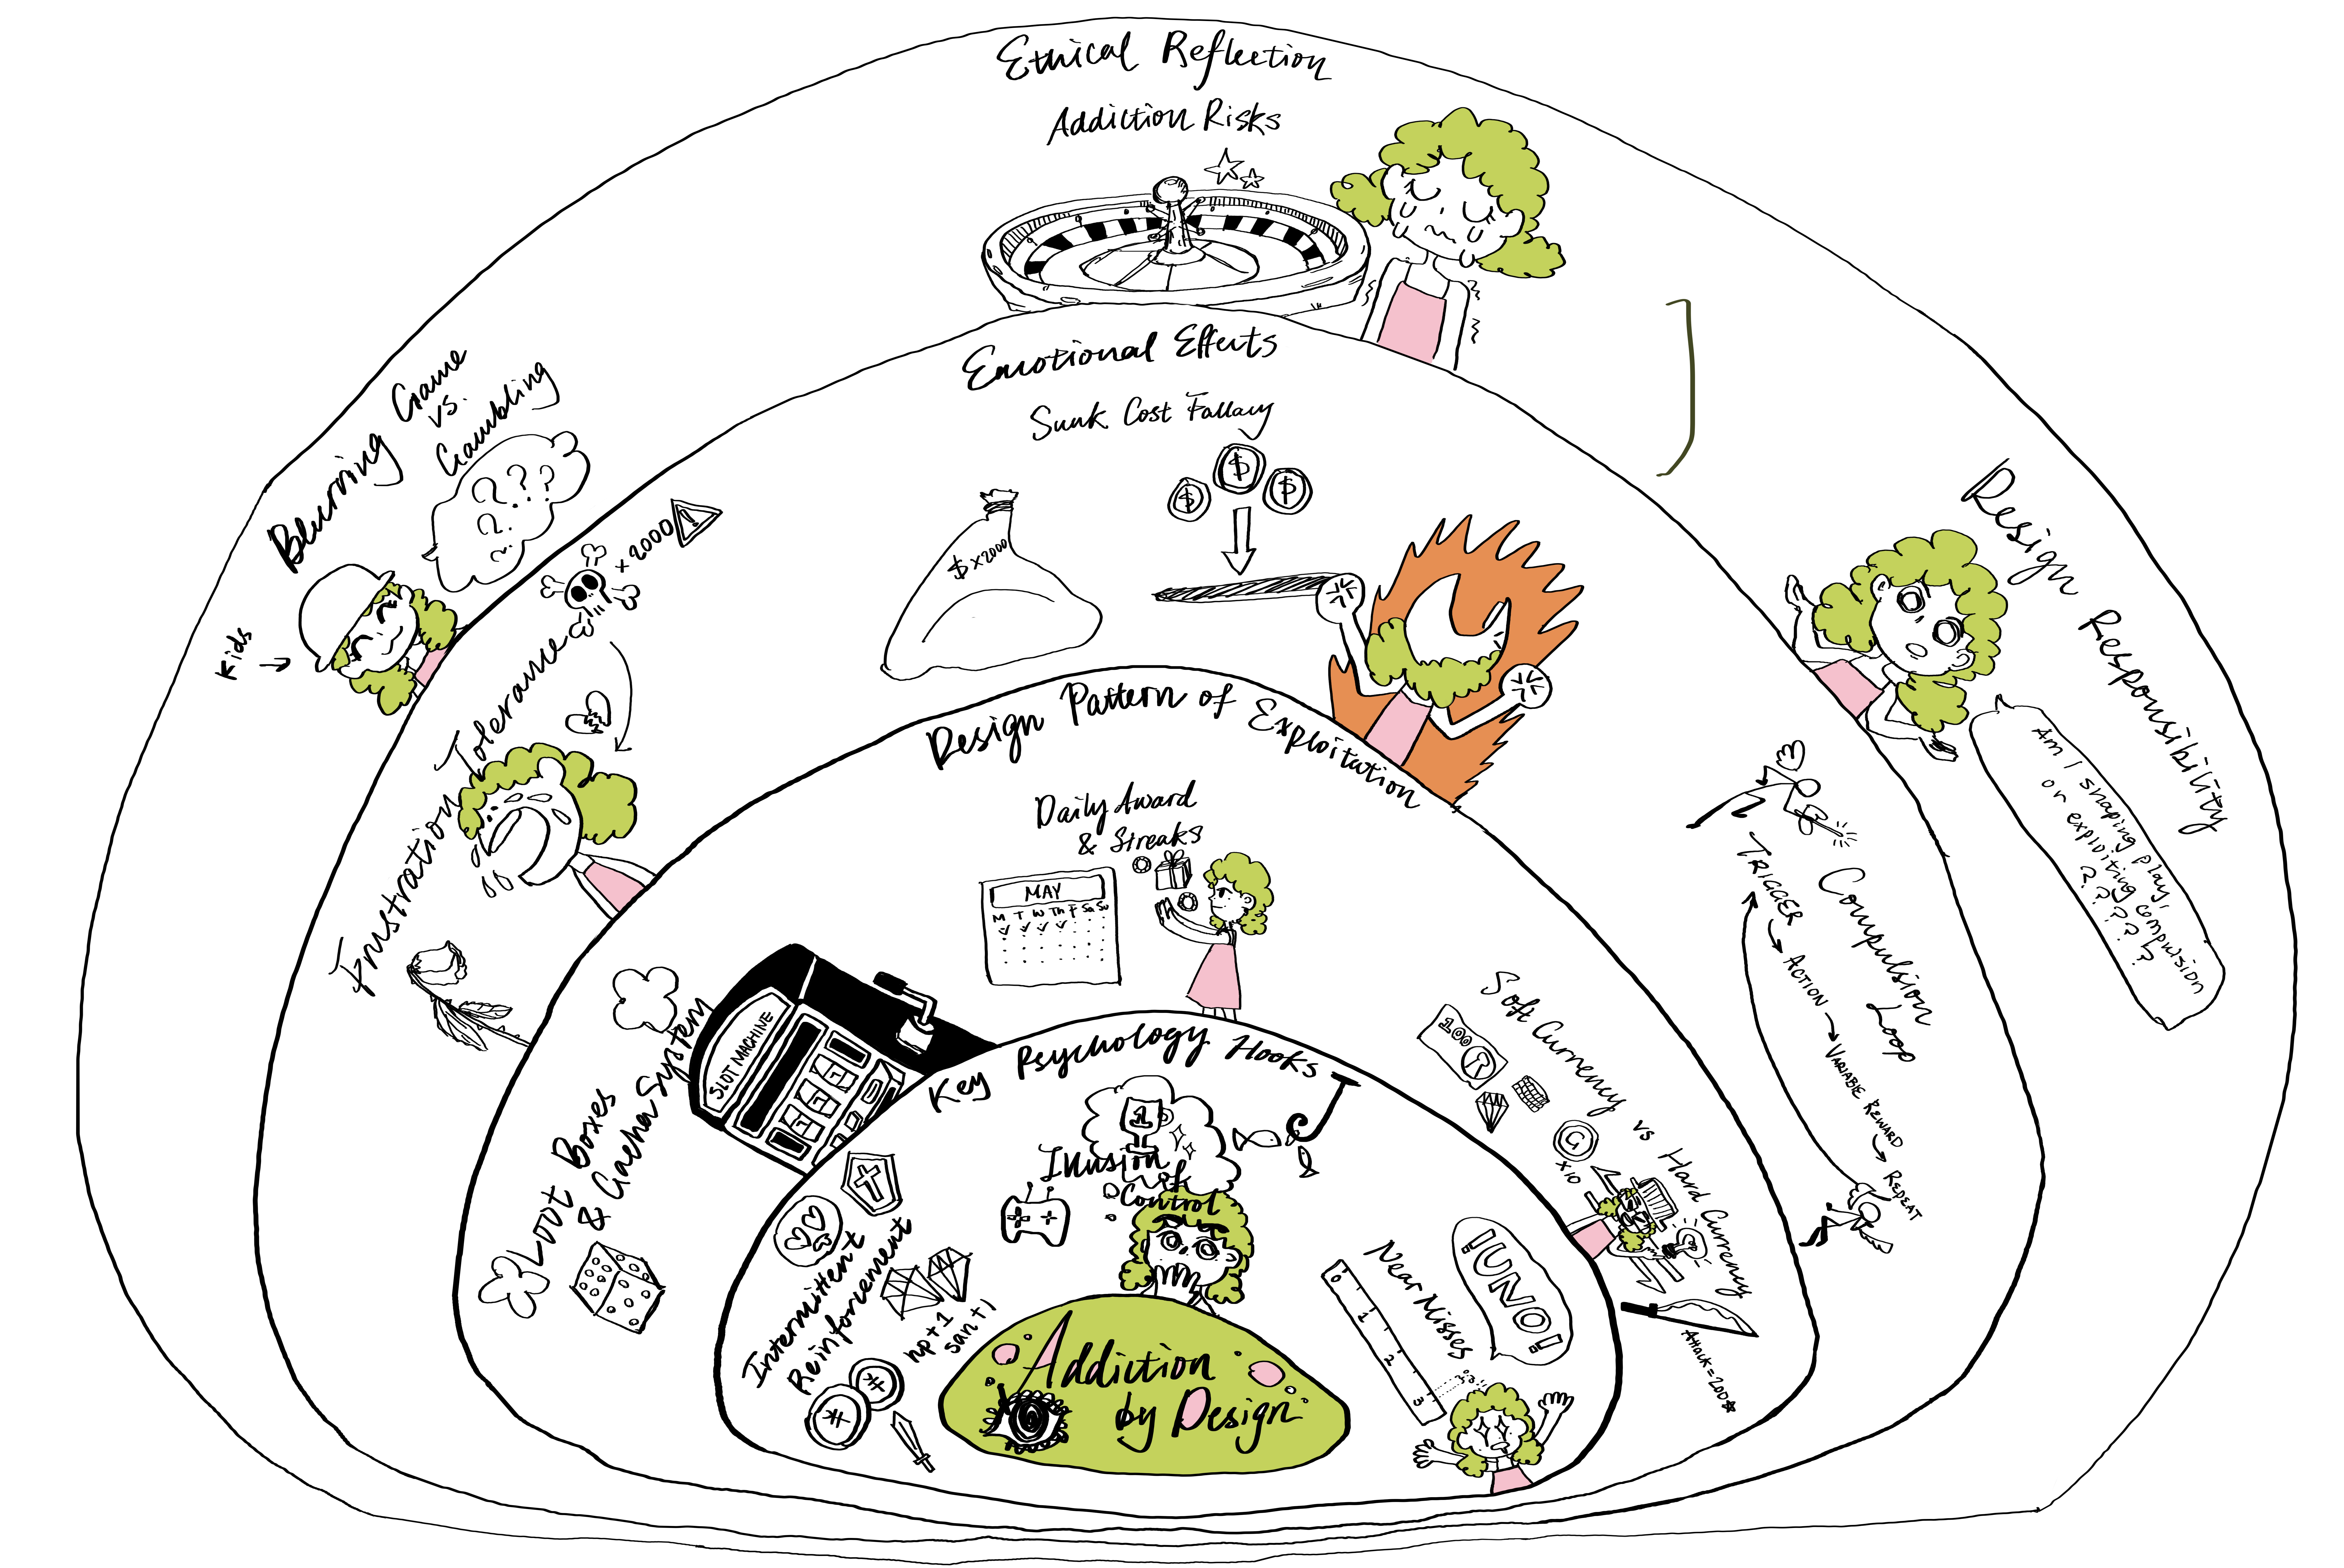 Ethical Reflection
Addiction Risks
Blurring Game
vs.
Gambling
? ? ? ?
? ?
Kids
Design Responsibility
Am I shaping play,
or exploiting compulsion
? ? ? ? ?
Emotional Effects
Sunk Cost Fallacy
$ $ $
$ x2000
x2000 !
Frustration Tolerance
Compulsion Loop
TRIGGER
ACTION
VARIABLE REWARD
REPEAT
Design Pattern of Exploitation
Daily Award
& Streaks
MAY
M T W Th F Sa Su
SLOT MACHINE
Loot Boxes
& Gacha System
Soft Currency vs Hard Currency
100 R
G
x10
Attack=200
Key Psychology Hooks
1
Illusion
of
Control
Intermittent
Reinforcement
hp+1
san+1
# #
Near Misses
0 1 2 3
!UNO!
Addiction
by Design